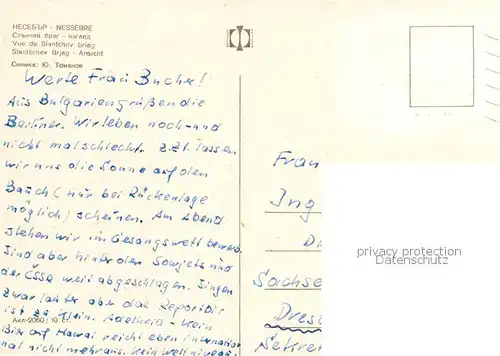 НЕСЕБЪР - NESSEBRE
Слънчев бряг - изглед
Vue de Slantchev briag
Slantschev Brjag - Ansicht
Снимка: Ю. Томанов
Werte Frau Bucher!
Aus Bulgarien grüßen die
Berliner. Wir leben noch - und
nicht mal schlecht. Z. Zt. lassen
wir uns die Sonne auf den
Bauch (nur bei Rückenlage
möglich) scheinen. Am Abend
stehen wir im Gesangswettbewerb.
Sind aber hinter den Sowjets und
der ČSSR weit abgeschlagen. Singen
zwar lauter aber das Repertoir
ist zu klein. Adelheid - kein
Bier auf Hawai reicht eben international
mal nicht mehr aus. Kein Weltniveau.
Акл-2060/10
Frau
Ing
Dr
Sachse
Dresd
Sekre
privacy protection
Datenschutz